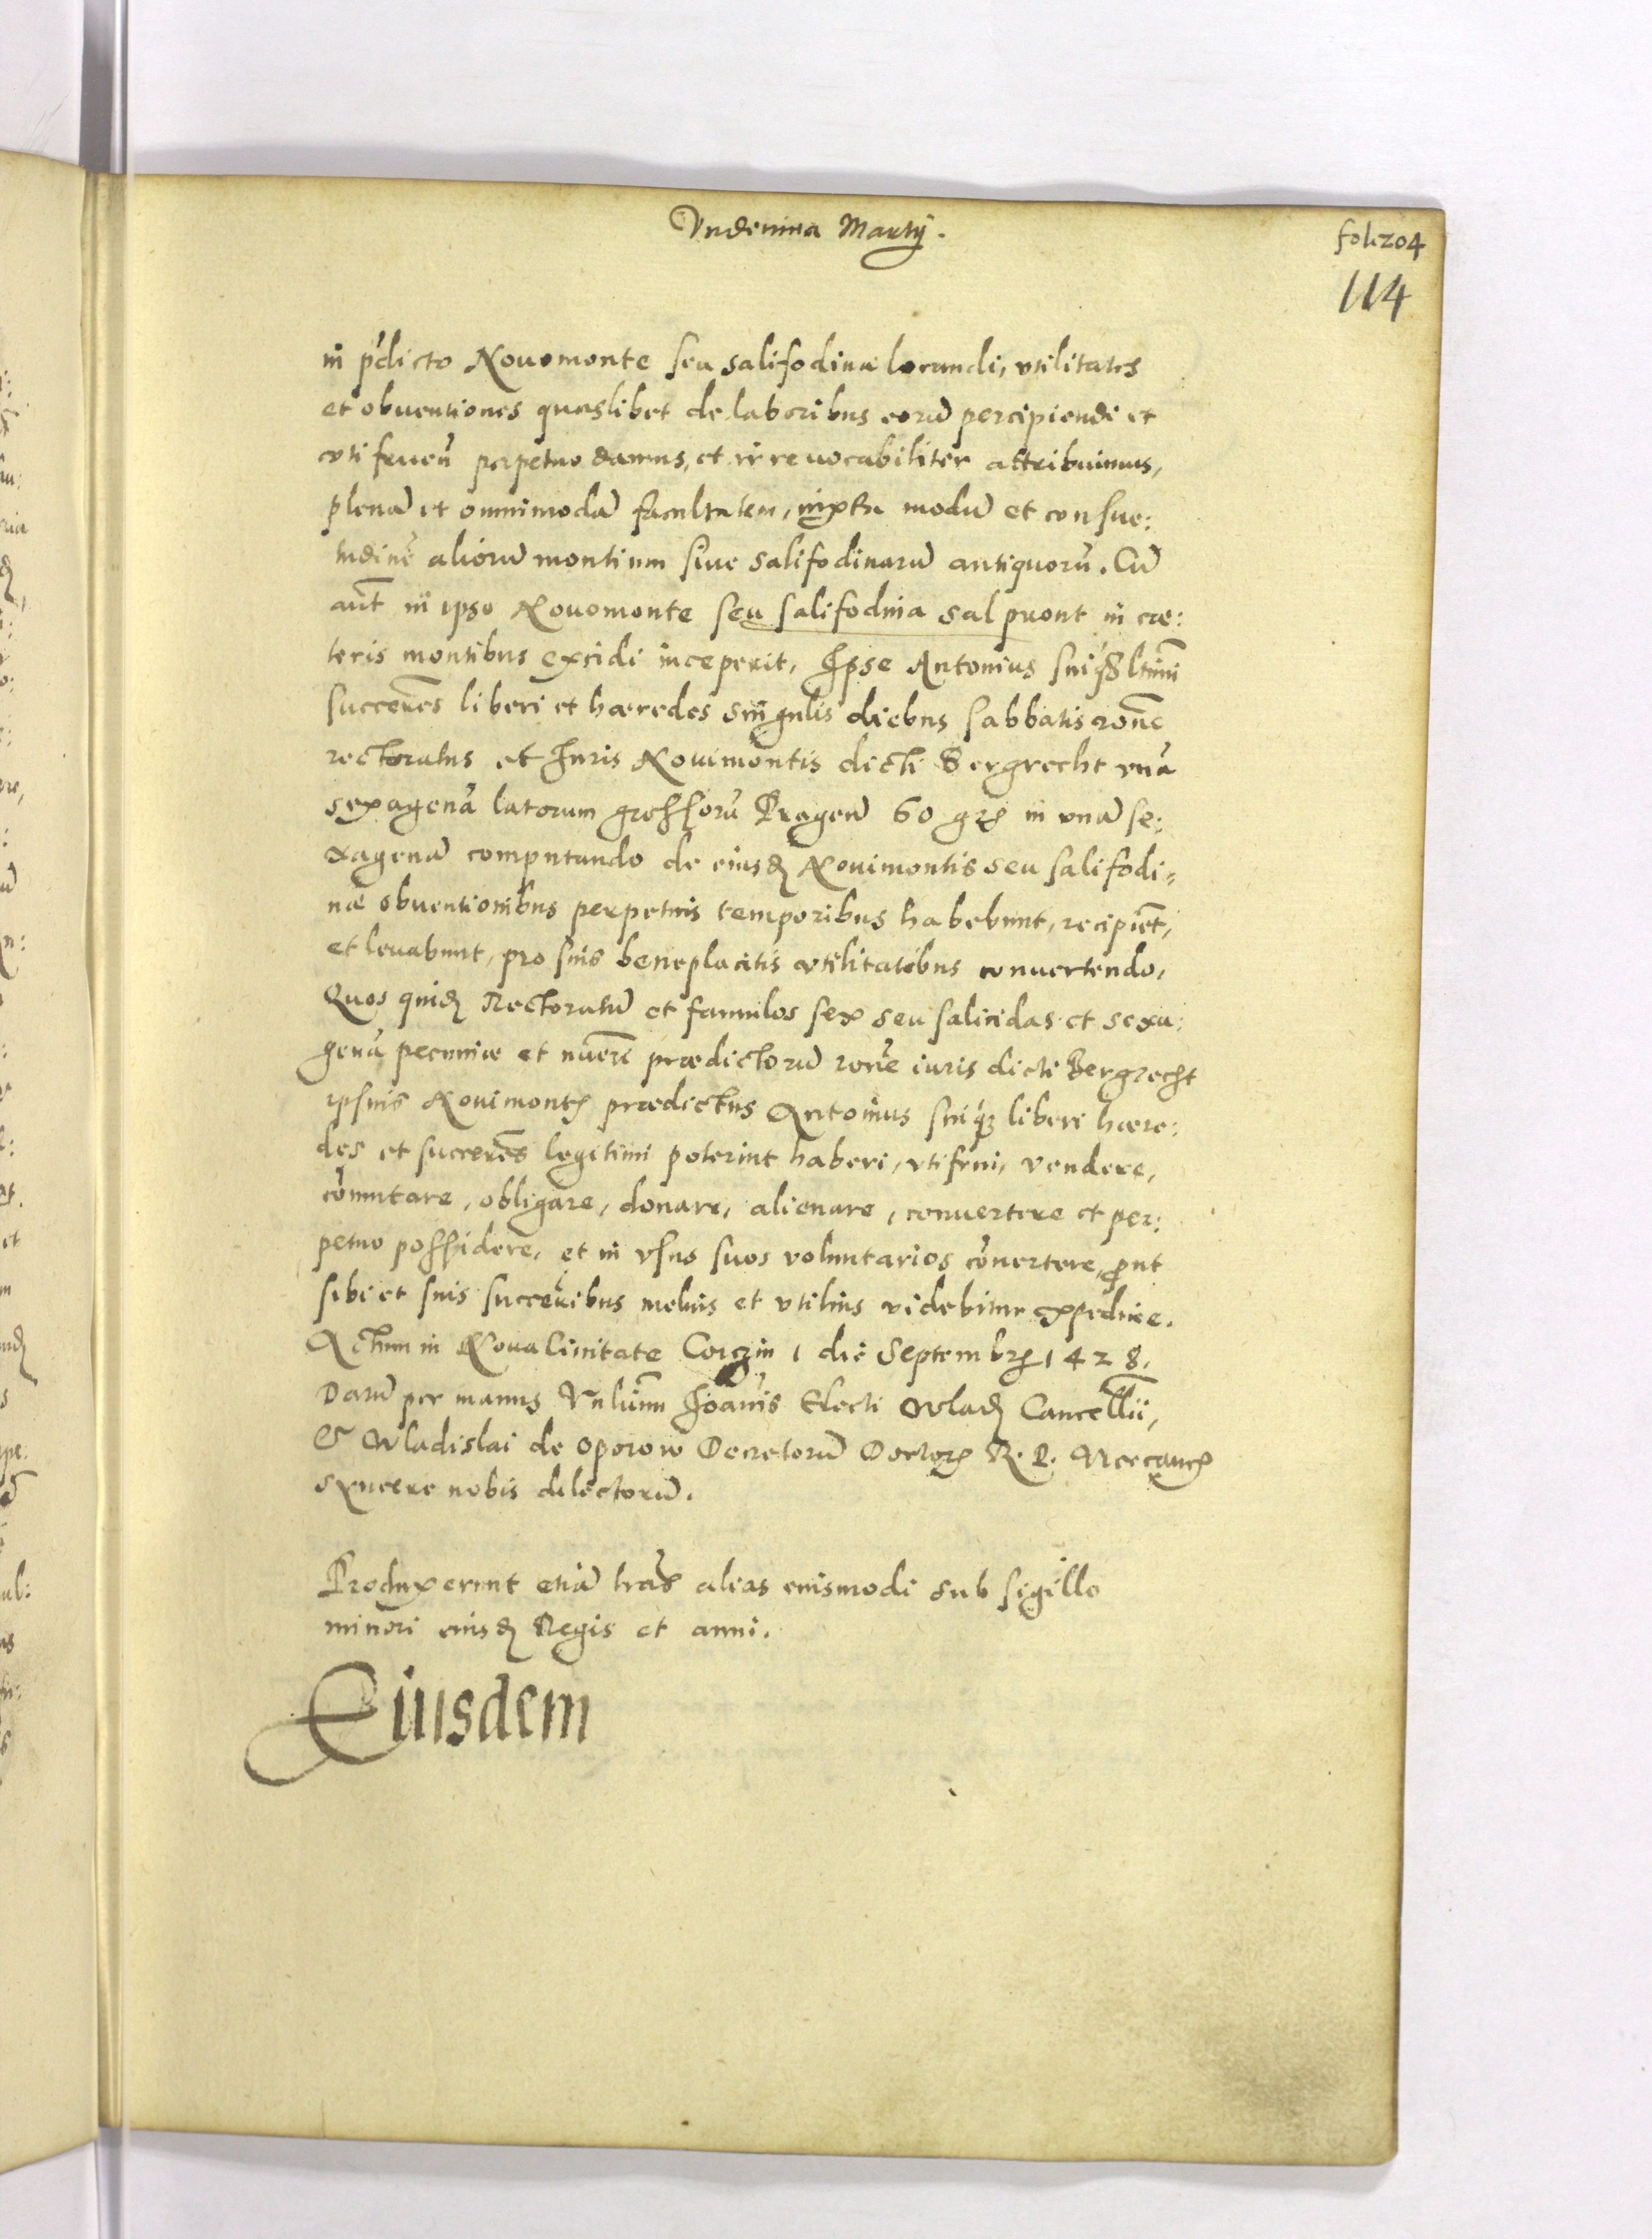 Vndecima Martÿ.
fol. 204
114
in p̃dicto Nouomonte seu salifodina locandi, vtilitates
et obuentiones quaslibet de laboribus eorũ percipiendi et
vti fruen̄ perpetuo damus, et irreuocabiliter attribuimus,
plenã et omnimodã facultatem, iuxta modũ et consue:
tudinẽ aliorũ montium siue salifodinarũ antiquorũ. Cũ
aũt in ipso Nouomonte seu salifodina sal pront in cæ:
teris montibus excidi inceperit, Ipse Antonius suiq̃ ltimi
succeres liberi et hæredes singulis diebus sabbatis rõne
rectoratus et Iuris Nouimontis dicti Bergrecht vnã
sexagenã latorum grossorũ Pragen̄ 60 grs in vnã se:
xagenã computando de eiusd Nouimontis seu salifodi=
næ obuentionibus perpetuis temporibus habebunt, recipiẽt,
et leuabunt, pro suis beneplacitis vtilitatibus conuertendo,
Quos quid Rectoratũ et famulos sex seu salicidas et sexa:
genã pecuniæ et nũeri prædictorũ rõne iuris dicti Bergrecht
ipsius Nouimont prædictus Antonius suiq̃ liberi hære:
des et succeres legitimi poterint haberi, vtifrui, vendere,
cõmutare, obligare, donare, alienare, conuertere et per:
petuo possidere, et in vsus suos voluntarios cõuertere, ꝓut
sibi et suis succeribus melius et vtilius videbitur expedire.
Actum in Noua Ciuitate Corczin 1 die Septembr 1428.
Datũ per manus Vnlium Ioãnis Electi Wlad Cancellii,
& Wladislai de Oporow Decretorũ Doctor R. P. Vicecanc
syncere nobis dilectorũ.
Produxerunt etiã lras alias eiusmodi sub sigillo
minori eiusd Regis et anni.
Eiusdem